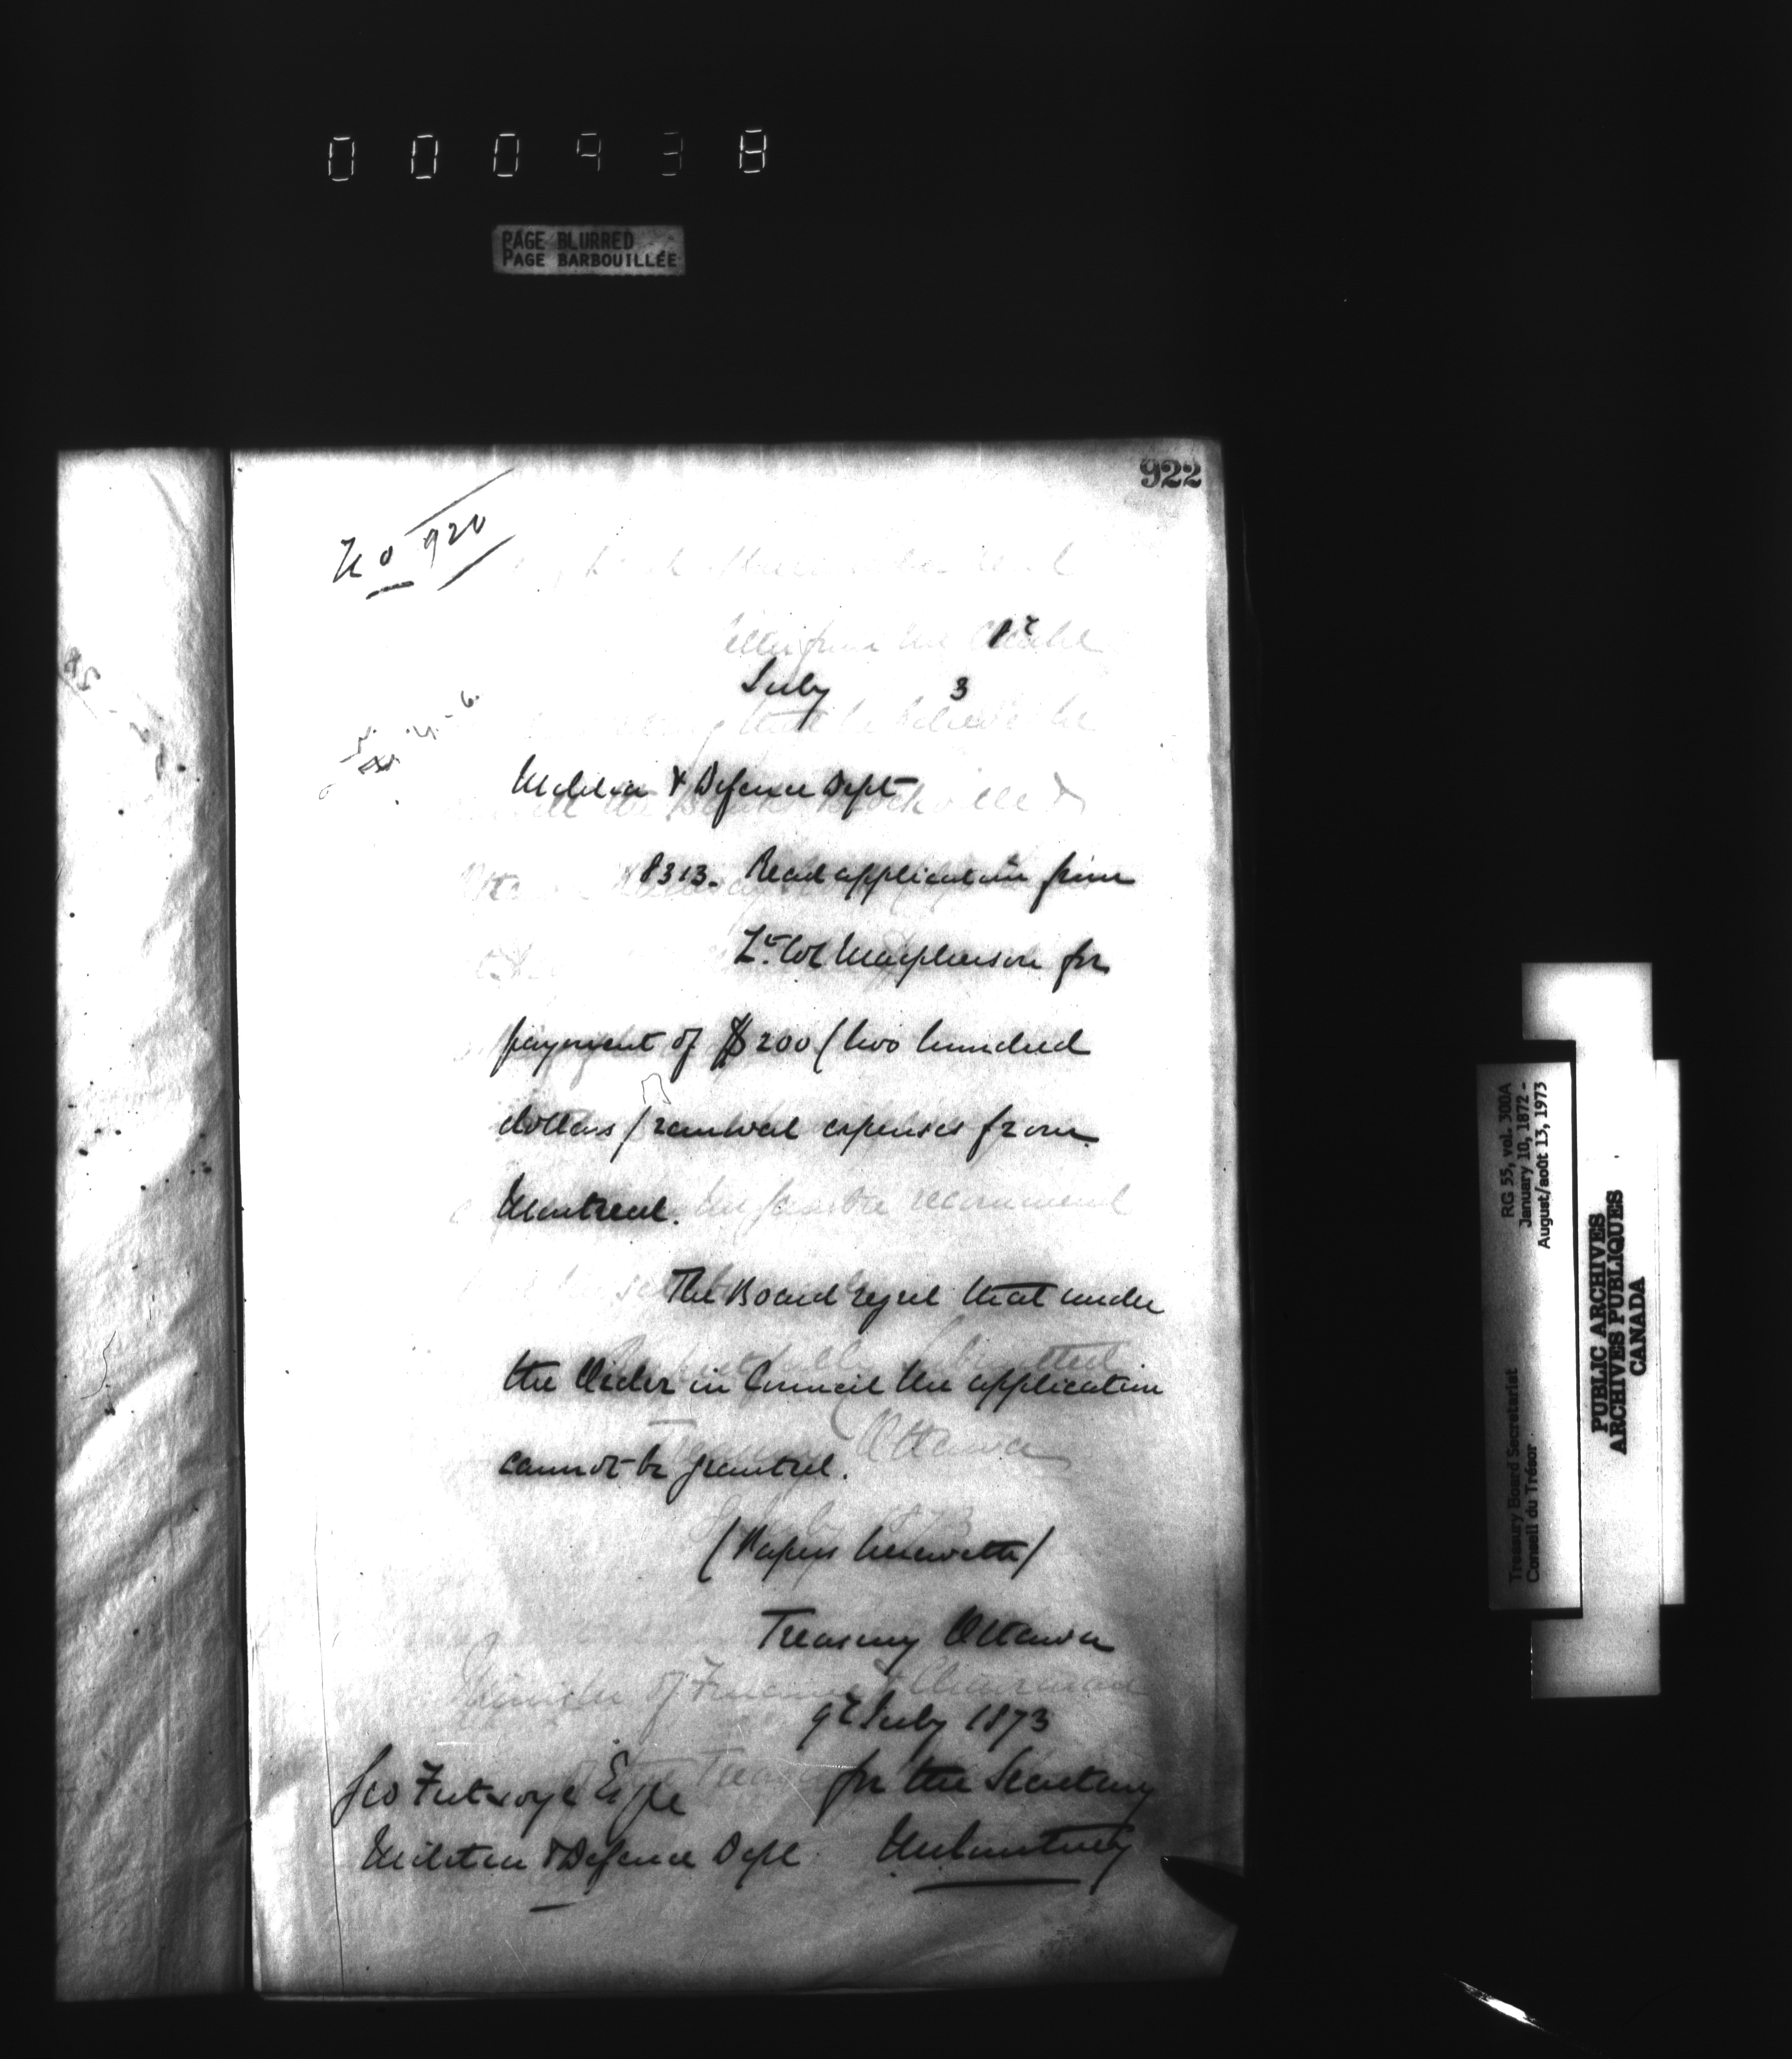 000938
PAGE BLURRED
PAGE BARBOUILLÉE
922
No 920
July 3
Militia & Defence Dept
8313. Read application from
Lt. Col Macpherson for
payment of $200 (two hundred
dollars) removal expenses from
Montreal.
The Board regret that under
the Order in Council the application
cannot be granted.
(Papers herewith)
Treasury Ottawa
9th July 1873
Geo Futvoye Esqre
for the Secretary
Militia & Defence Dept
RG 55, vol. 300A
January 10, 1872 -
August/août 13, 1973
Treasury Board Secretariat
Conseil du Trésor
PUBLIC ARCHIVES
ARCHIVES PUBLIQUES
CANADA